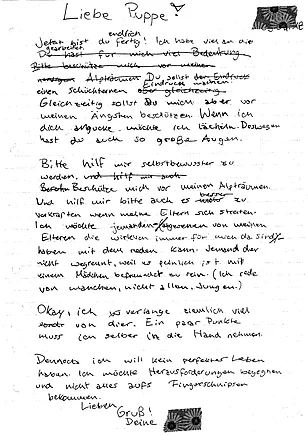 Liebe Puppe!
endlich
Jetzt bist du fertig! Ich habe viel an dir
gearbeitet
Du hast für mich viel Bedeutung
Bitte beschütze mich vor meinen
Alpträumen Du sollst den Eindruck
einen schüchternen Eindruck machen
Gleichzeitig sollst du mich aber vor
meinen Ängsten beschützen. Wenn ich
dich angucke möchte ich lächeln. Deswegen
hast du auch so große Augen.
Bitte hilf mir selbstbewusster zu
werden, und hilf mir auch
Beschütze mich vor meinen Alpträumen.
Und hilf mir bitte auch es besser zu
verkraften wenn meine Eltern sich streiten.
Ich möchte jemanden abgesehen von meinen
Elteren die wirklich immer für mich da sind
haben mit dem reden kann. Jemand der
nicht wegrennt, weil es peinlich ist mit
einem Mädchen befreundet zu sein. (Ich rede
von manchen, nicht allen, Jungen.)
Okay, ich verlange ziemlich viel
von dier. Ein paar Punkte
muss ich selber in die Hand nehmen.
Dennoch ich will kein perfektes Leben
haben. Ich möchte Herausforderungen begegnen
und nicht alles aufs Fingerschnipsen
bekommen.
Lieben
Gruß!
Deine